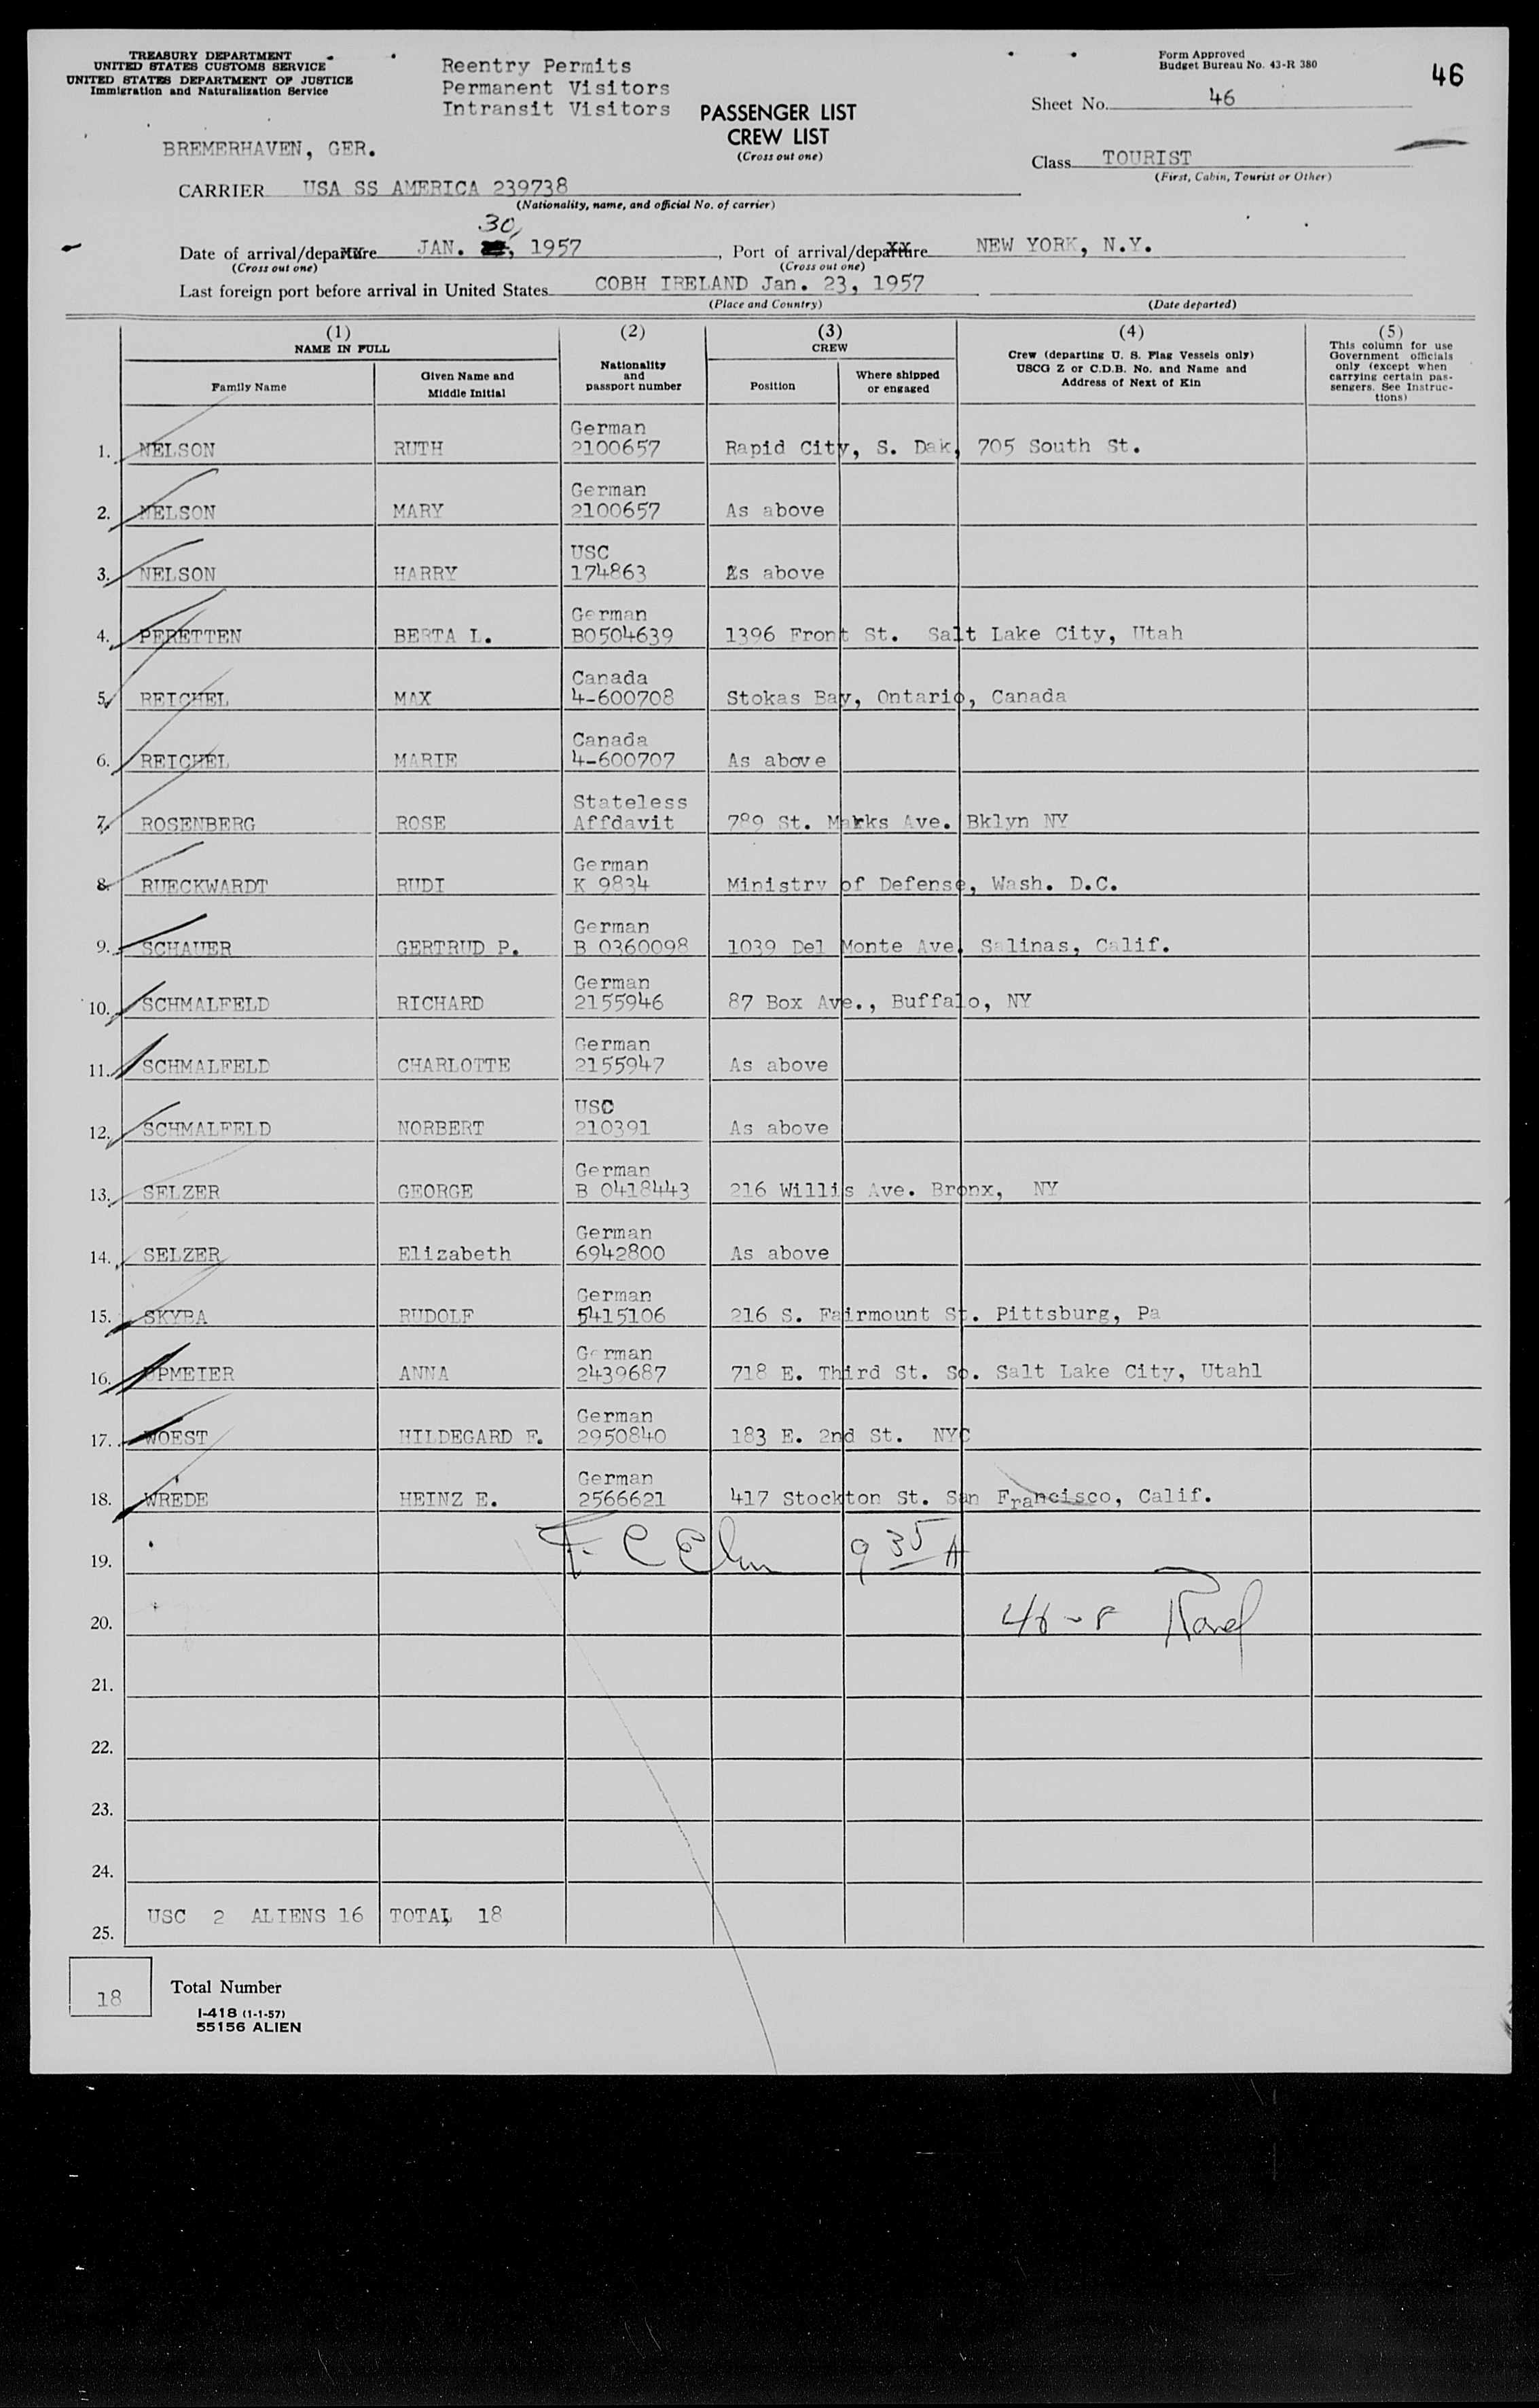 TREASURY DEPARTMENT
UNITED STATES CUSTOMS SERVICE
UNITED STATES DEPARTMENT OF JUSTICE
Immigration and Naturalization Service
Reentry Permits
Permanent Visitors
Intransit Visitors
PASSENGER LIST
CREW LIST
(Cross out one)
Form Approved
Budget Bureau No. 43-R 380
46
Sheet No. 46
BREMERHAVEN, GER.
Class TOURIST
(First, Cabin, Tourist or Other)
CARRIER USA SS AMERICA 239738
(Nationality, name, and official No. of carrier)
30,
Date of arrival/departure JAN. , 1957, Port of arrival/departure NEW YORK, N.Y.
(Cross out one) (Cross out one)
Last foreign port before arrival in United States COBH IRELAND Jan. 23, 1957
(Place and Country) (Date departed)
(1) (2) (3) (4) (5)
NAME IN FULL
Family Name
Given Name and
Middle Initial
Nationality
and
passport number
CREW
Position
Where shipped
or engaged
Crew (departing U. S. Flag Vessels only)
USCG Z or C.D.B. No. and Name and
Address of Next of Kin
This column for use
Government officials
only (except when
carrying certain pas-
sengers. See Instruc-
tions)
German
1. NELSON RUTH 2100657 Rapid City, S. Dak, 705 South St.
German
2. NELSON MARY 2100657 As above
USC
3. NELSON HARRY 174863 As above
German
4. PERETTEN BERTA L. B0504639 1396 Front St. Salt Lake City, Utah
Canada
5. REICHEL MAX 4-600708 Stokas Bay, Ontario, Canada
Canada
6. REICHEL MARIE 4-600707 As above
Stateless
7. ROSENBERG ROSE Affdavit 789 St. Marks Ave. Bklyn NY
German
8. RUECKWARDT RUDI K 9834 Ministry of Defense, Wash. D.C.
German
9. SCHAUER GERTRUD P. B 0360098 1039 Del Monte Ave. Salinas, Calif.
German
10. SCHMALFELD RICHARD 2155946 87 Box Ave., Buffalo, NY
German
11. SCHMALFELD CHARLOTTE 2155947 As above
USC
12. SCHMALFELD NORBERT 210391 As above
German
13. SELZER GEORGE B 0418443 216 Willis Ave. Bronx, NY
German
14. SELZER Elizabeth 6942800 As above
German
15. SKYBA RUDOLF 5415106 216 S. Fairmount St. Pittsburg, Pa
German
16. UPMEIER ANNA 2439687 718 E. Third St. So. Salt Lake City, Utahl
German
17. WOEST HILDEGARD F. 2950840 183 E. 2nd St. NYC
German
18. WREDE HEINZ E. 2566621 417 Stockton St. San Francisco, Calif.
19. 9 35 A
20.
21.
22.
23.
24.
USC 2 ALIENS 16 TOTAL 18
25.
18 Total Number
I-418 (1-1-57)
55156 ALIEN